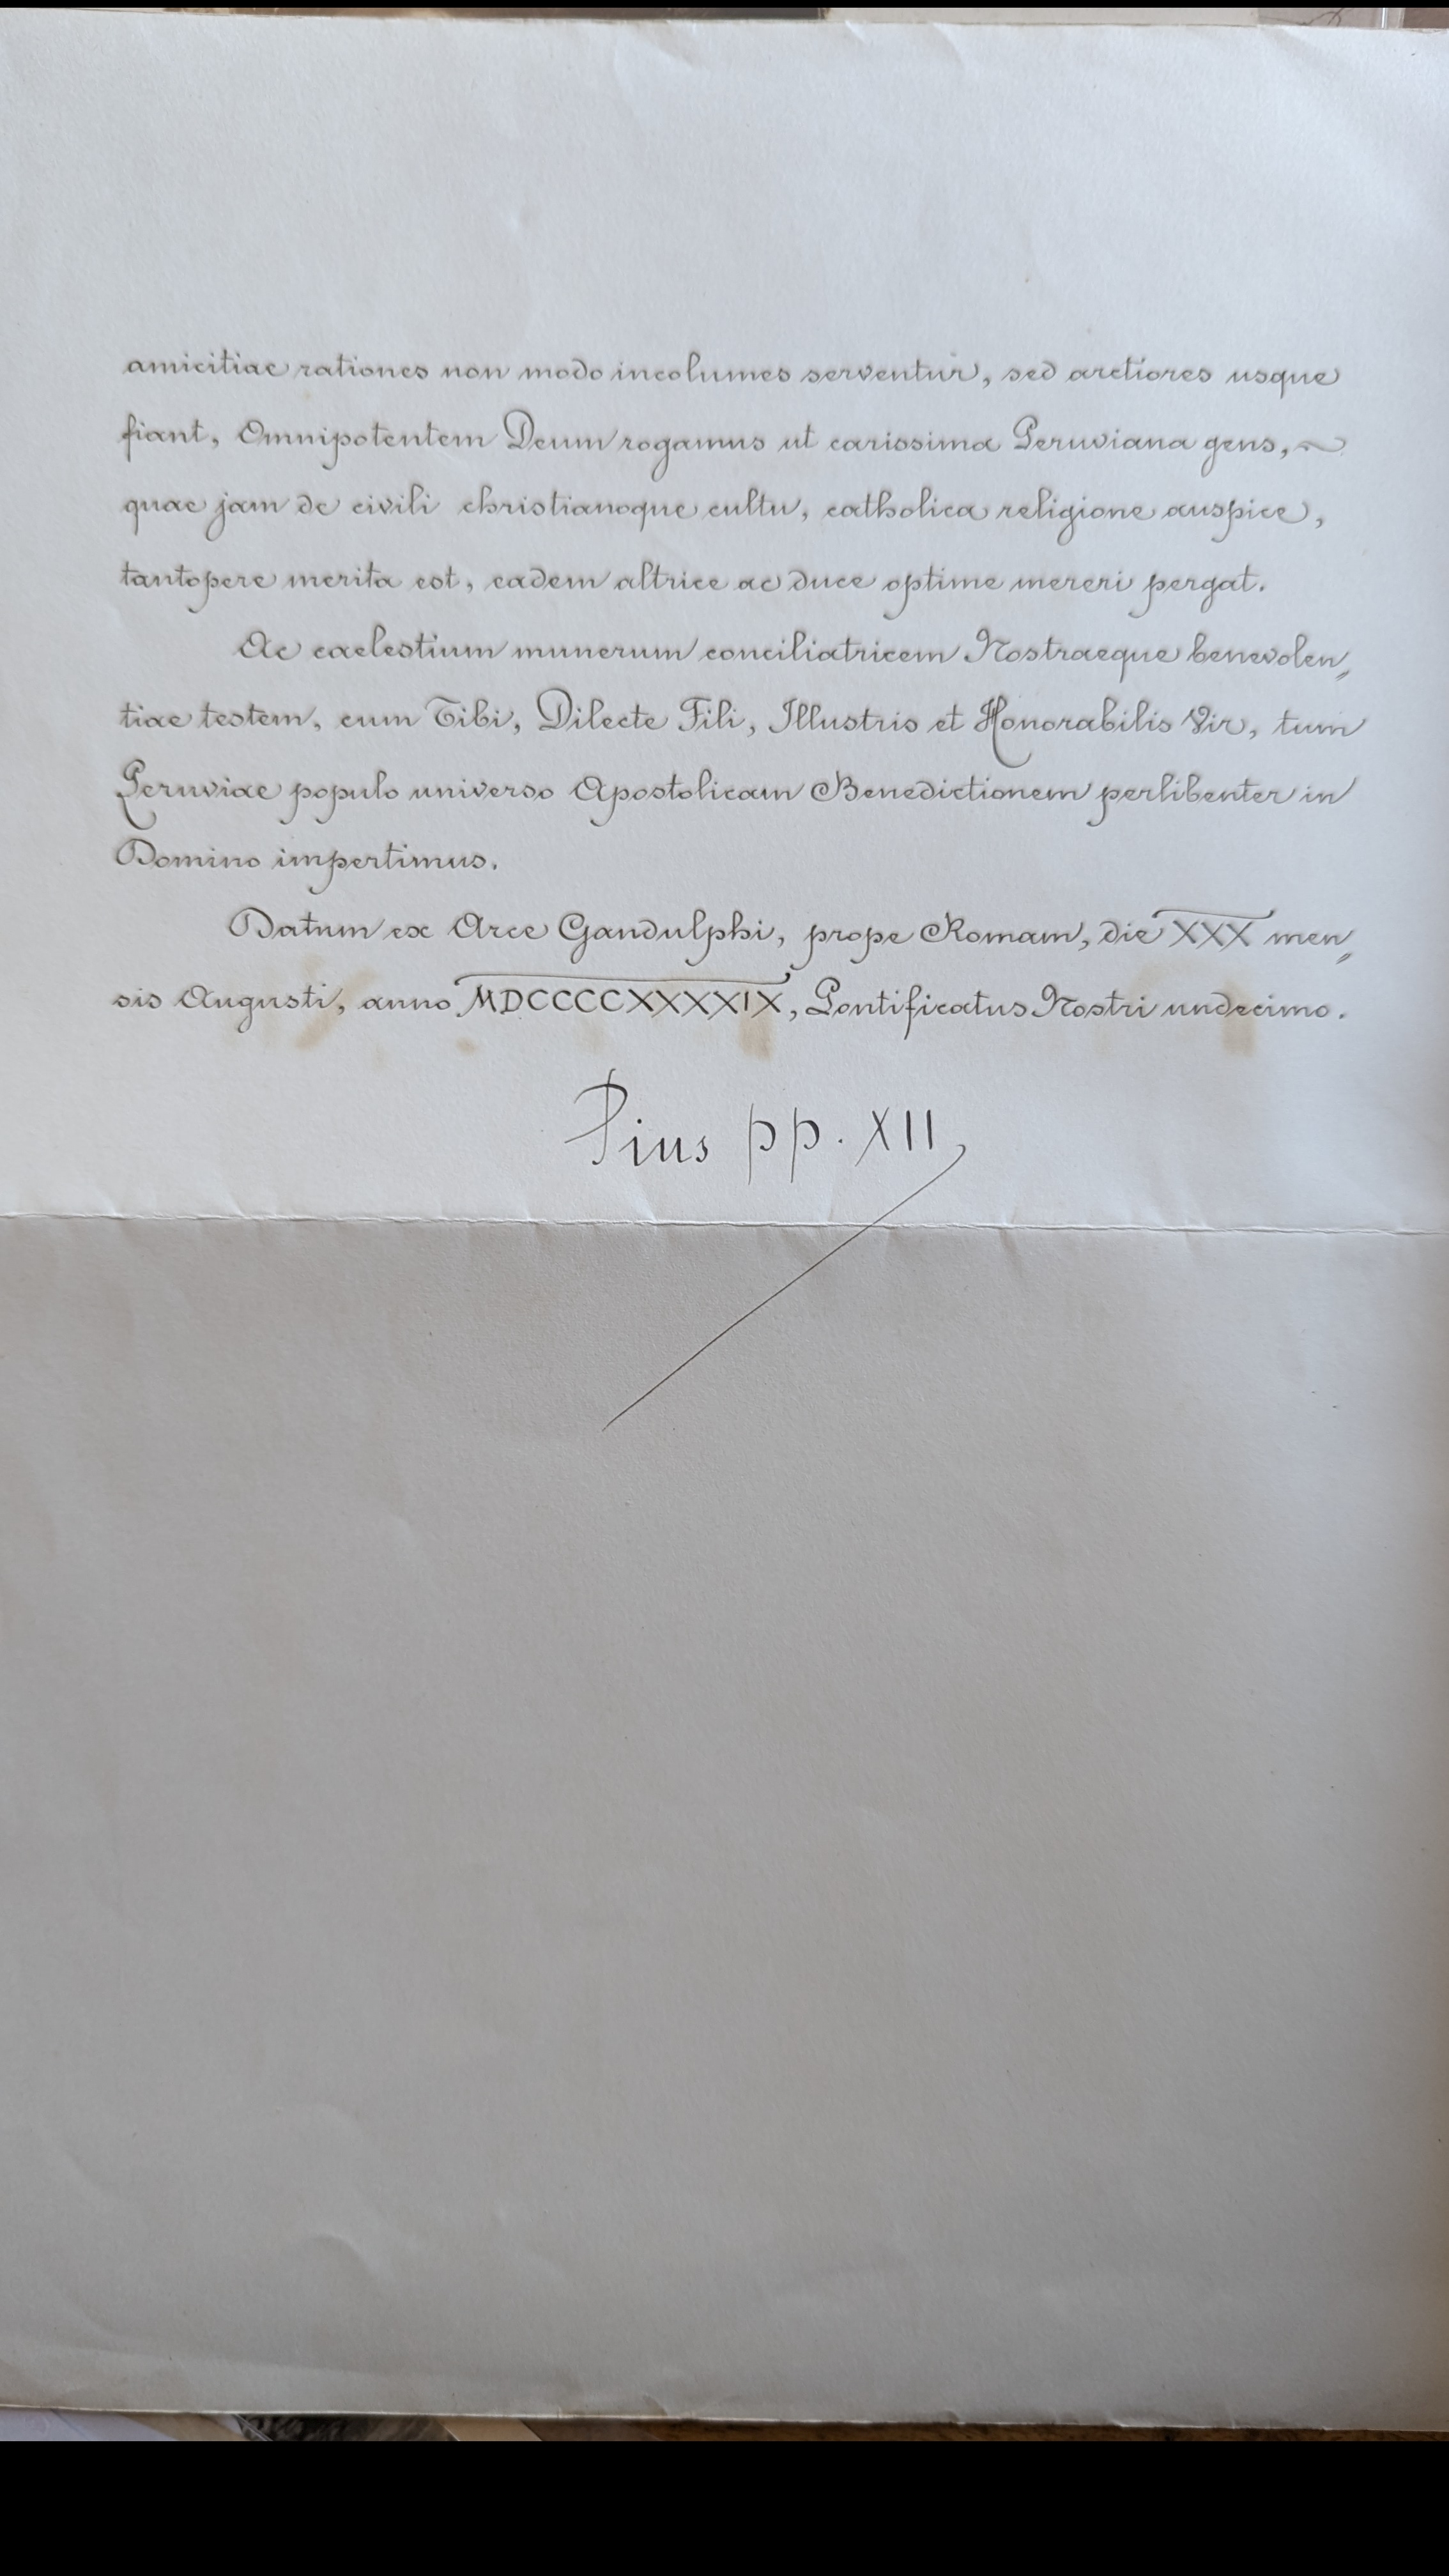 amicitiae rationes non modo incolumes serventur, sed arctiores usque
fiant, Omnipotentem Deum rogamus ut carissima Peruviana gens, ~
quae jam de civili christianoque cultu, catholica religione auspice,
tantopere merita est, eadem altrice ac duce optime mereri pergat.
Ac caelestium munerum conciliatricem Nostraeque benevolen„
tiae testem, cum Tibi, Dilecte Fili, Illustris et Honorabilis Vir, tum
Peruviae populo universo Apostolicam Benedictionem perlibenter in
Domino impertimus.
Datum ex Arce Gandulphi, prope Romam, die XXX men„
sis Augusti, anno MDCCCCXXXXIX, Pontificatus Nostri undecimo.
Pius pp. XII